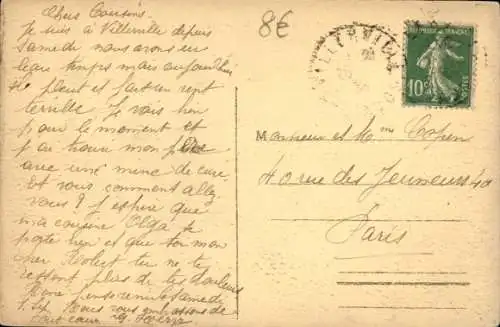 Chers Cousins.
Je suis à Villerville depuis
Samedi nous avons eu
beau temps mais aujourd'hui
il pleut et fait un vent
terrible Je vais bien
pour le moment et
j'ai trouvé mon père
avec une mine de cure
Et vous comment allez
vous? J'espère que
ma cousine Olga se
porte bien et que toi mon
cher tu ne te
ressent plus de tes douleurs
Samedi
1. Sep. Nous vous embrassons de
tout cœur
8€
VILLERVILLE
REPUBLIQUE FRANÇAISE
10c
POSTES
Monsieur et Mme
40 rue des Jeuneurs 40
Paris